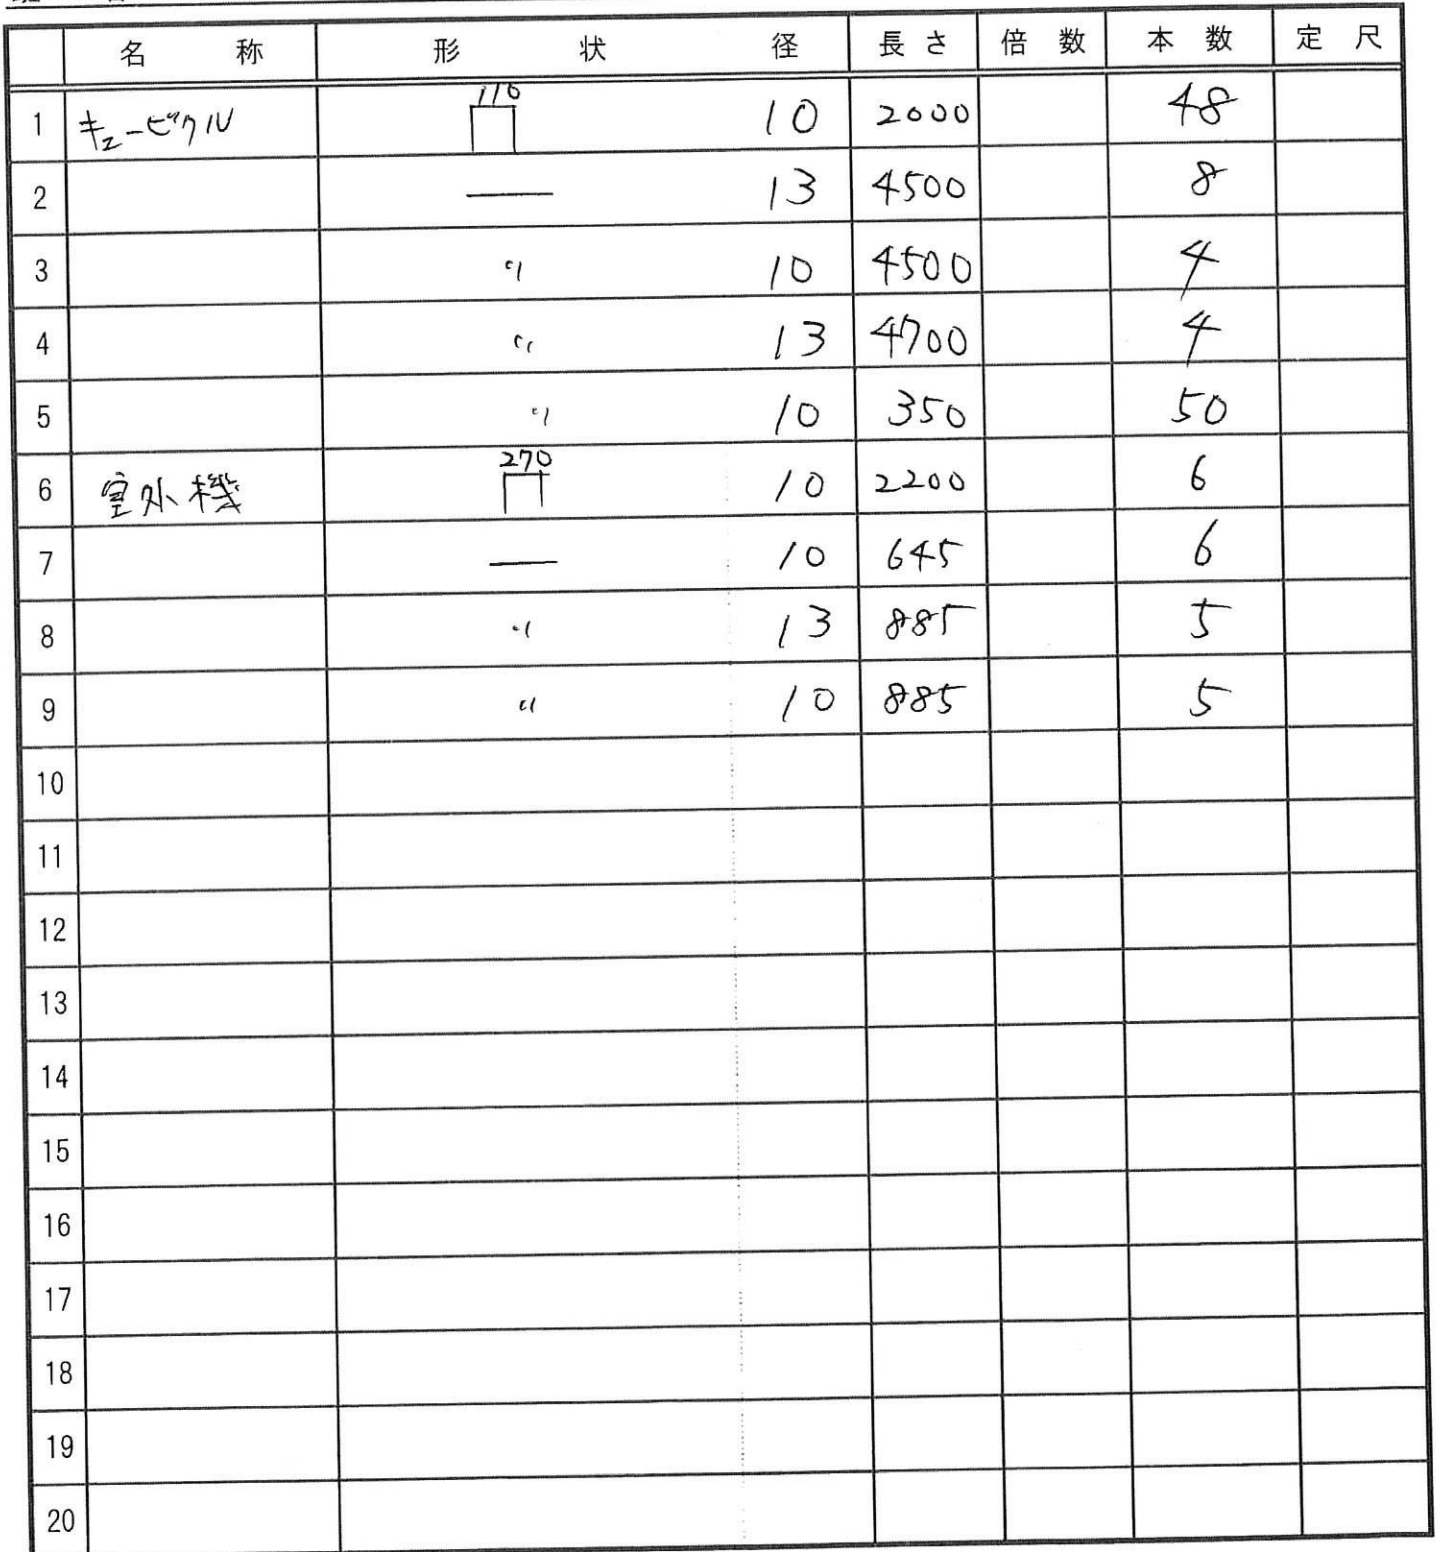 名 称 形 状 径 長さ 倍数 本数 定尺
1 キュービクル 110 10 2000 48
2 — 13 4500 8
3 〃 10 4500 4
4 〃 13 4700 4
5 〃 10 350 50
6 室外機 270 10 2200 6
7 — 10 645 6
8 〃 13 885 5
9 〃 10 885 5
10
11
12
13
14
15
16
17
18
19
20